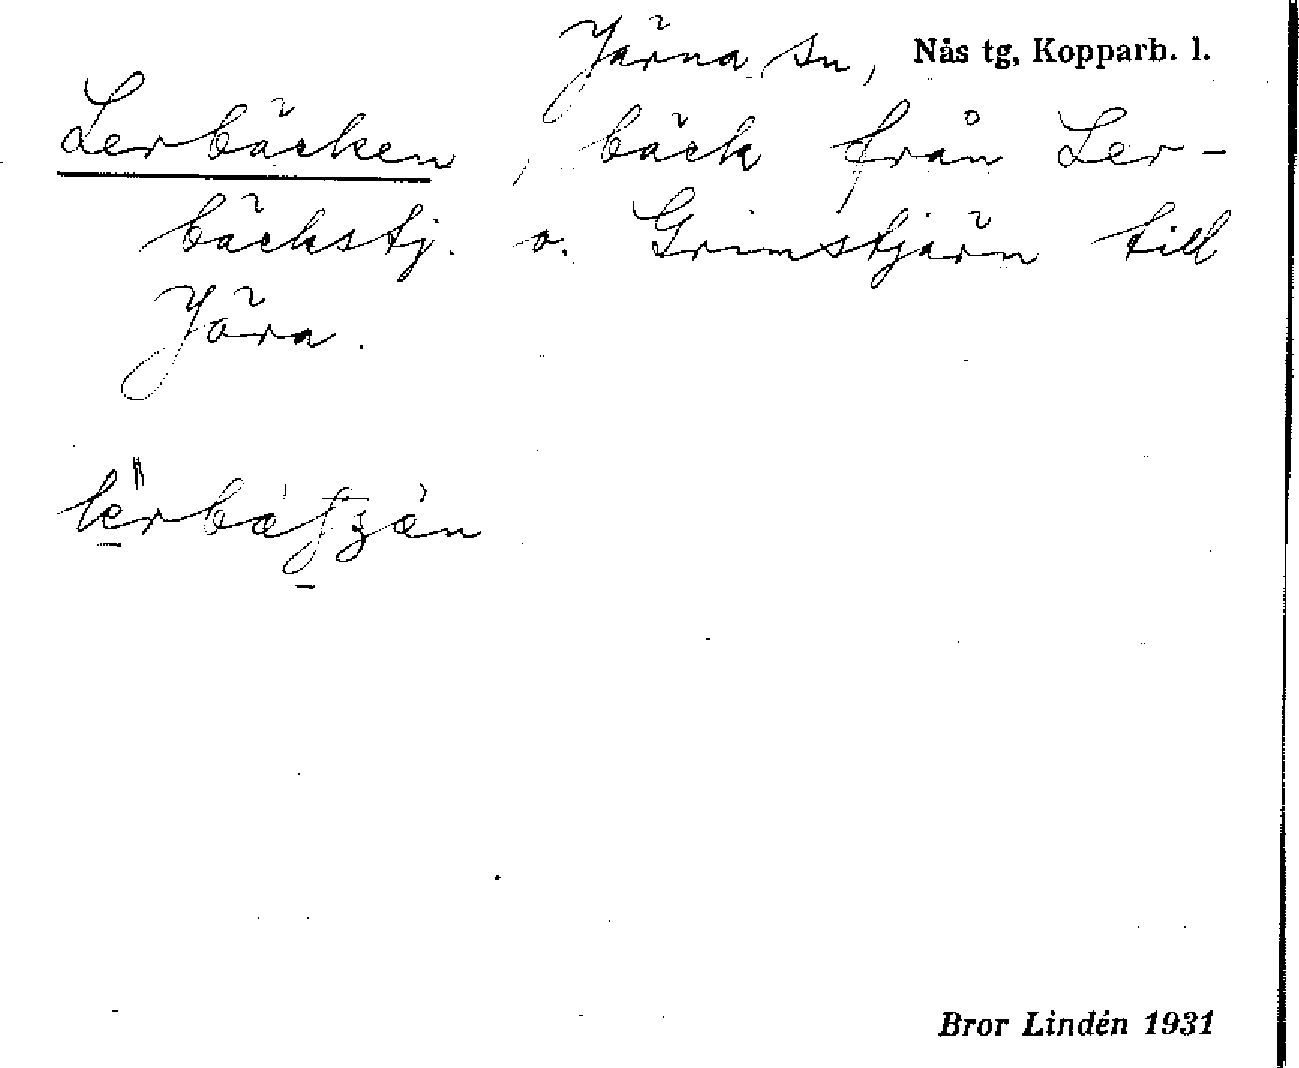 Järna sn, Nås tg, Kopparb. l.
Lerbäcken, bäck från Ler-
bäckstj. o. Grimstjärn till
Jära.
Bror Lindén 1931